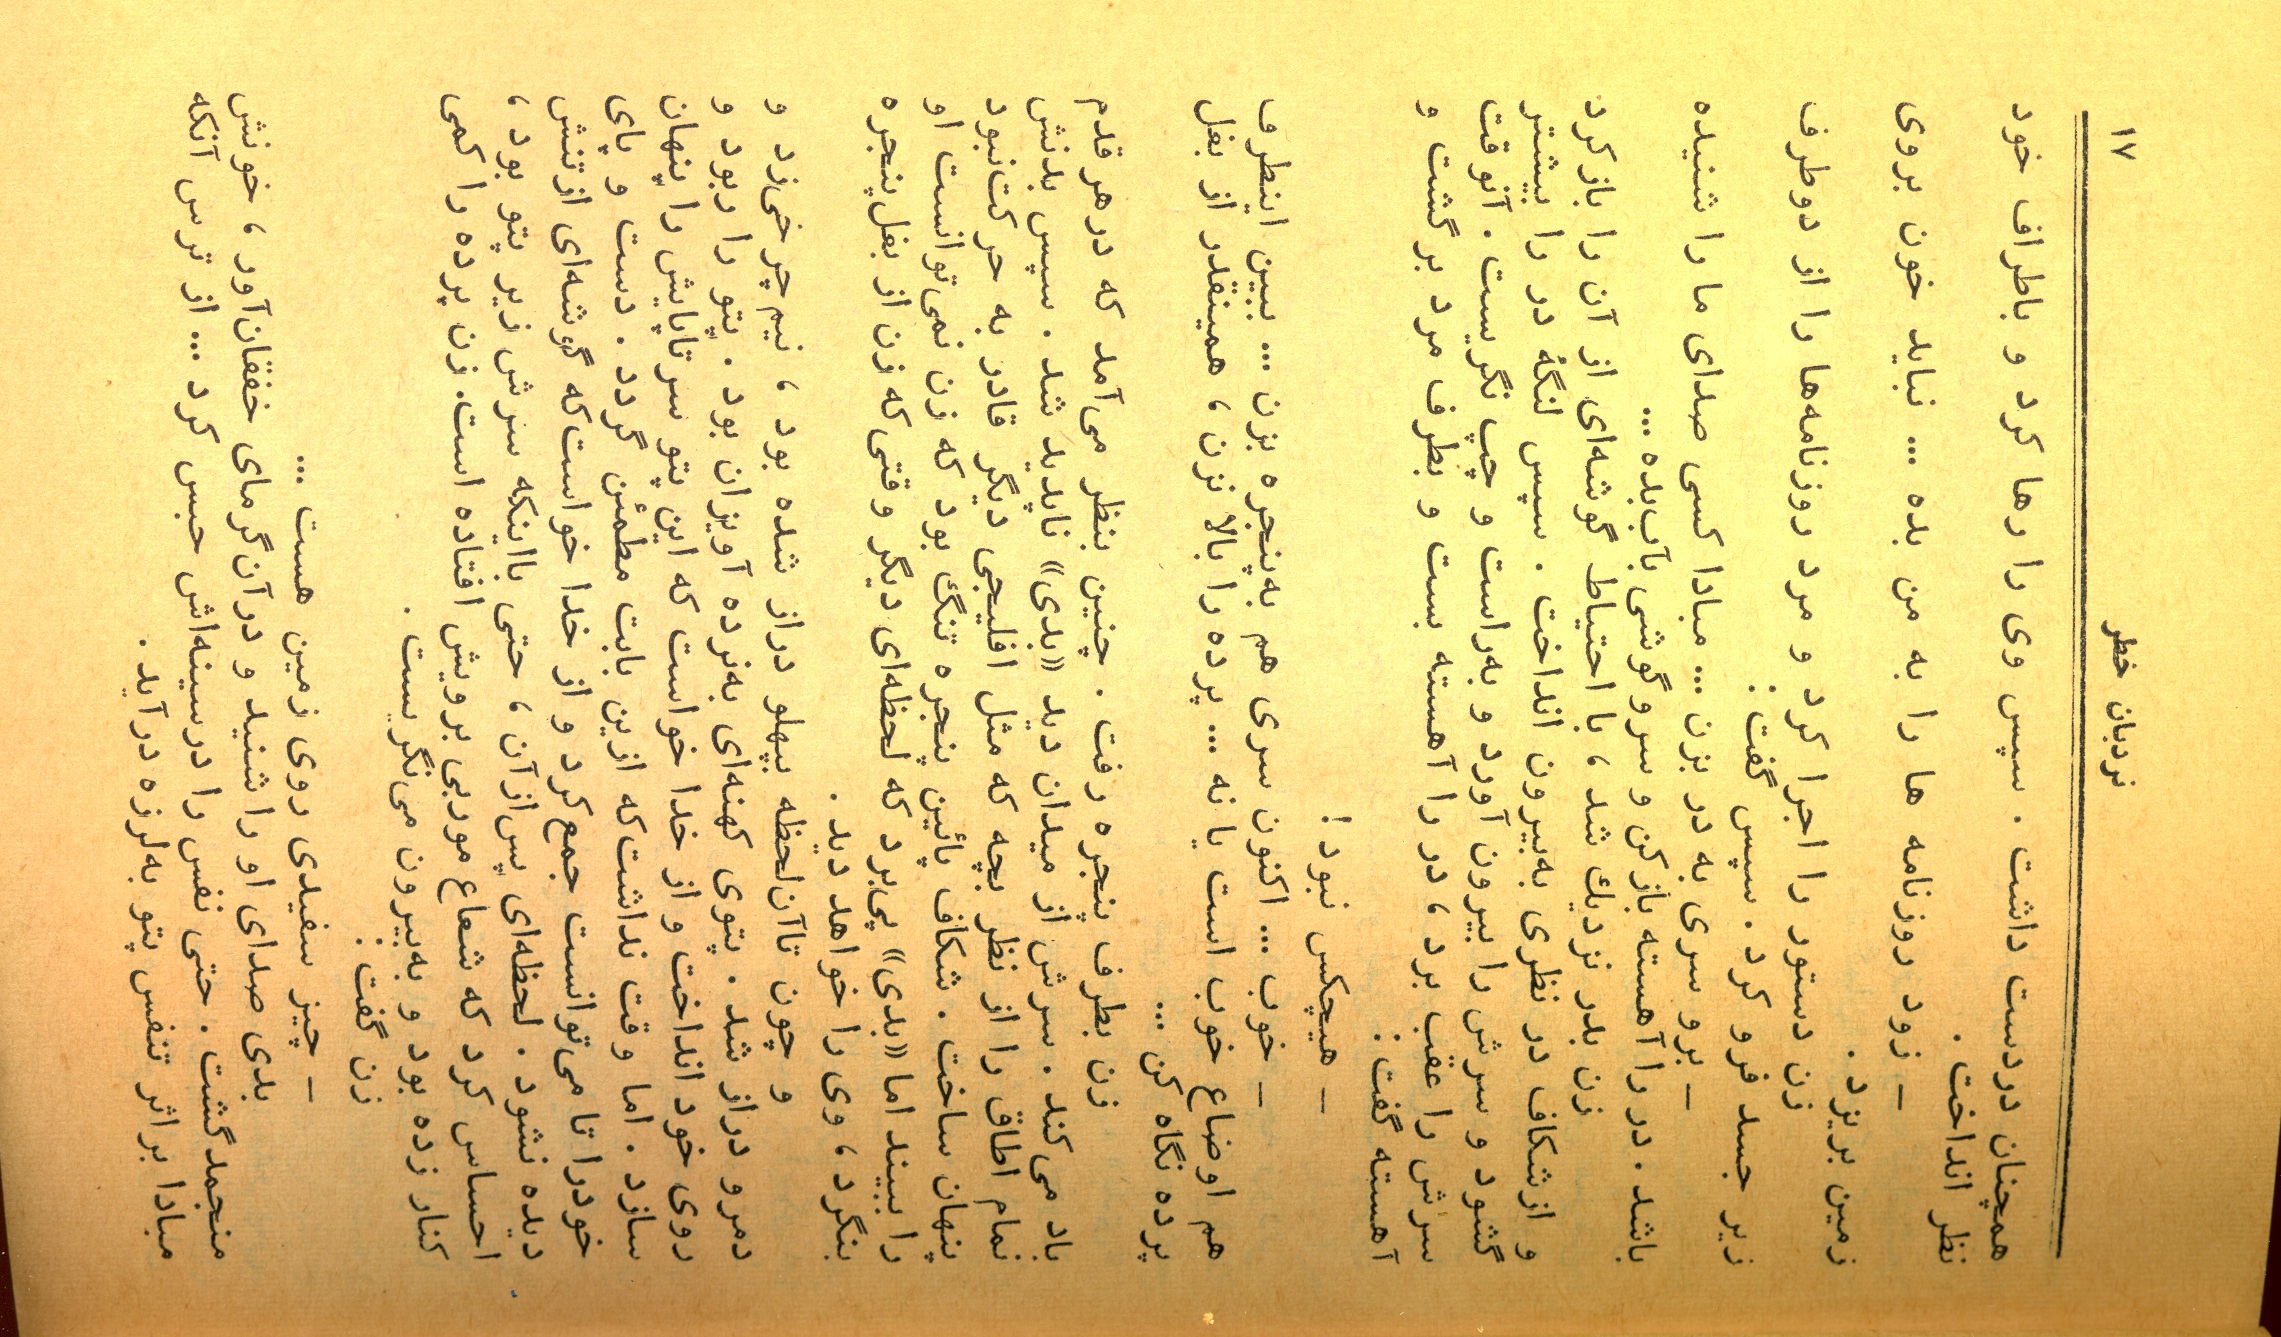 ۱۷
نردبان خطر
همچنان دردست داشت . سپس وی را رها کرد و باطراف خود
نظر انداخت .
– زود روزنامه ها را به من بده ... نباید خون بروی
زمین بریزد .
زن دستور را اجرا کرد و مرد روزنامه‌ها را از دوطرف
زیر جسد فرو کرد . سپس گفت :
– برو سری به در بزن ... مبادا کسی صدای ما را شنیده
باشد . در را آهسته بازکن و سرو گوشی بآب‌بده ...
زن بدر نزدیك شد ، با احتیاط گوشه‌ای از آن را باز کرد
و از شکاف در نظری به‌بیرون انداخت . سپس لنگهٔ در را بیشتر
گشود و سرش را بیرون آورد و به‌راست و چپ نگریست . آنوقت
سرش را عقب برد ، در را آهسته بست و بطرف مرد برگشت و
آهسته گفت :
– هیچکس نبود !
– خوب ... اکنون سری هم به‌پنجره بزن ... ببین اینطرف
هم اوضاع خوب است یا نه ... پرده را بالا نزن ، همینقدر از بغل
پرده نگاه کن ...
زن بطرف پنجره رفت . چنین بنظر می‌آمد که درهرقدم
باد می‌کند . سرش از میدان دید «بدی» ناپدید شد . سپس بدنش
تمام اطاق را از نظر بچه که مثل افلیجی دیگر قادر به حرکت‌نبود
پنهان ساخت . شکاف پائین پنجره تنگ بود که زن نمی‌توانست او
را ببیند اما «بدی» پی‌برد که لحظه‌ای دیگر وقتی که زن از بغل‌پنجره
بنگرد ، وی را خواهد دید .
و چون تاآن‌لحظه بپهلو دراز شده بود ، نیم‌چرخی‌زد و
دمرو دراز شد . پتوی کهنه‌ای به‌نرده آویزان بود . پتو را ربود و
روی خود انداخت و از خدا خواست که این پتو سرتاپایش را پنهان
سازد . اما وقت نداشت‌که ازین بابت مطمئن گردد . دست و پای
خودرا تا می‌توانست جمع‌کرد و از خدا خواست‌که گوشه‌ای ازتنش
دیده نشود . لحظه‌ای پس‌ازآن ، حتی بااینکه سرش زیر پتو بود ،
احساس کرد که شعاع موربی برویش افتاده است. زن پرده را کمی
کنار زده بود و به‌بیرون می‌نگریست .
زن گفت :
– چیز سفیدی روی زمین هست ...
بدی صدای او را شنید و درآن گرمای خفقان‌آور ، خونش
منجمد گشت . حتی نفس را درسینه‌اش حبس کرد ... از ترس آنکه
مبادا براثر تنفس پتو به‌لرزه درآید .